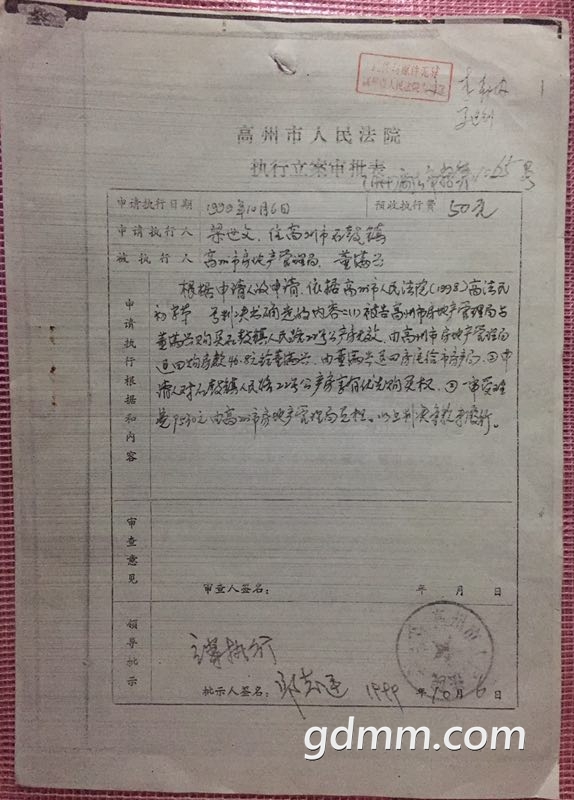 高州市人民法院
执行立案审批表
65号
申请执行日期 1999年10月6日 预收执行费 50元
申请执行人 梁世文,住高州市石鼓镇
被执行人 高州市房地产管理局、董满兴
申请执行根据和内容
根据申请人的申请,依据高州市人民法院(1998)高法民
初字第 号判决书确定的内容:(1)被告高州市房地产管理局与
董满兴购买石鼓镇人民路22号公产房无效,由高州市房地产管理局
退回购房款 给董满兴,由董满兴退回房屋给市房产局,
请人对石鼓镇人民路22号公产房享有优先购买权,
由高州市房地产管理局负担。以上判决
审查意见
审查人签名: 年 月 日
领导批示
立案执行
批示人签名: 1999年10月6日
gdmm.com